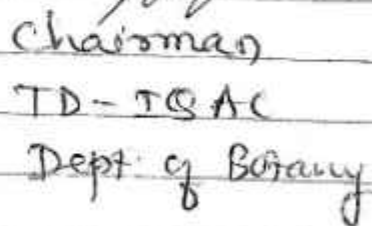 Chairman
TD - IQAC
Dept. of Botany